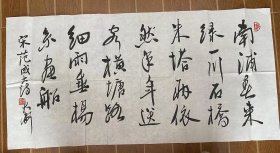 南浦春来
绿一川石桥
朱塔两依
然年年送
客横塘路
细雨垂杨
系画船
宋范成大诗